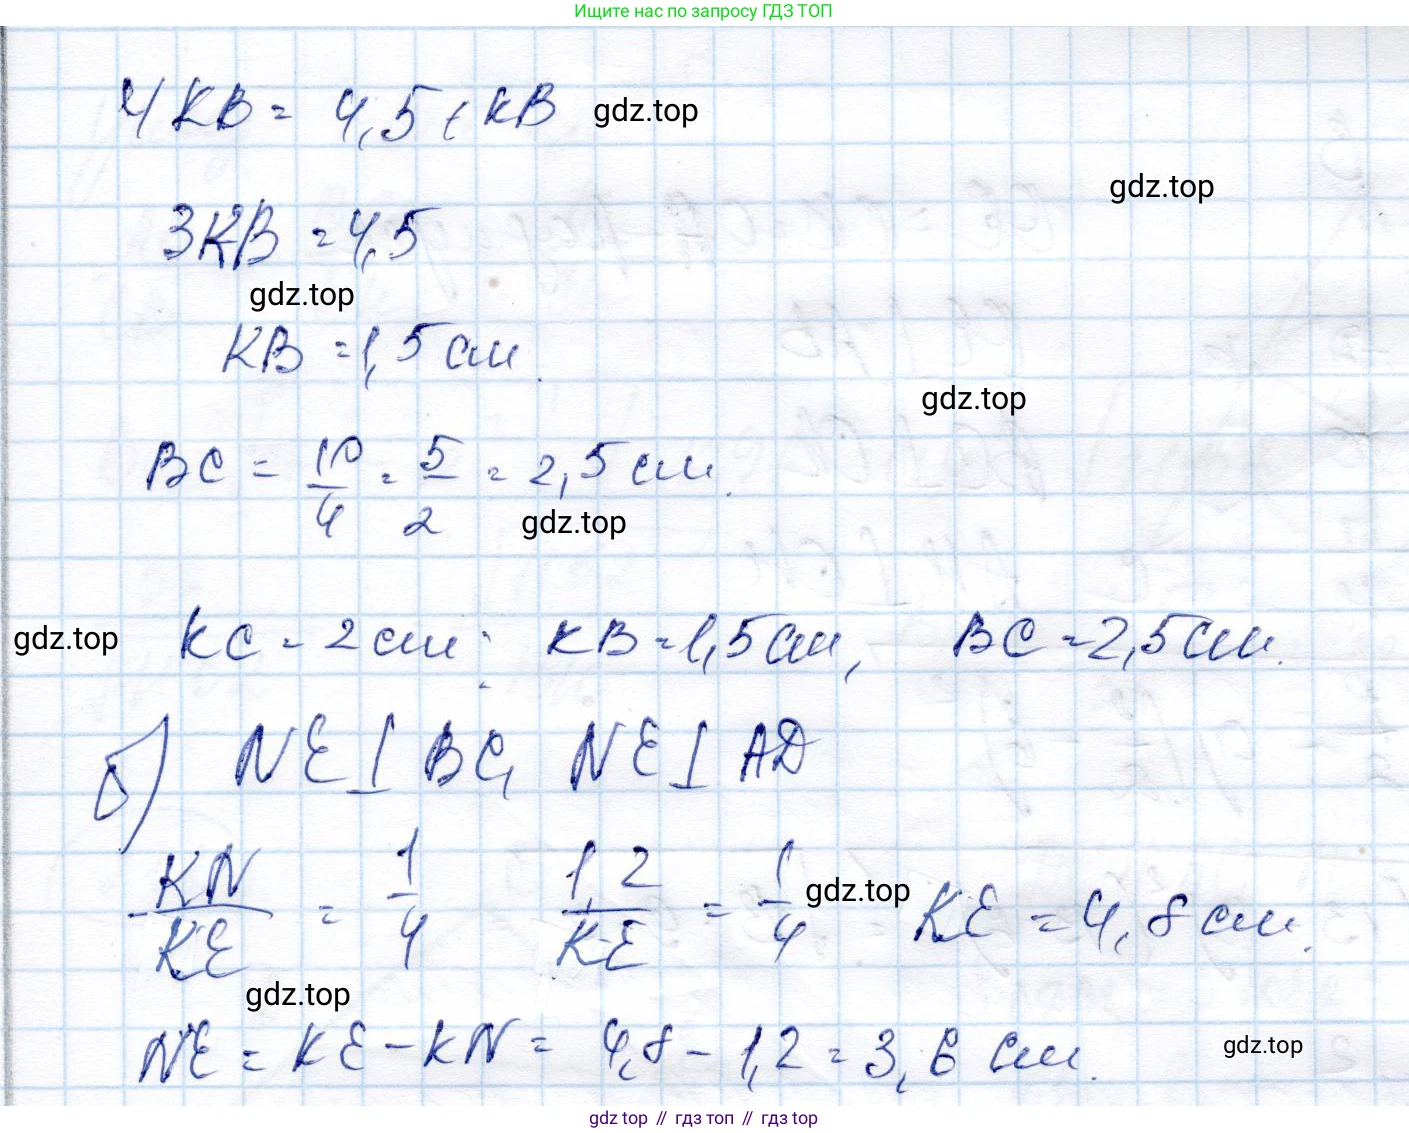 Ищите нас по запросу ГДЗ ТОП
4KB = 4,5 + KB gdz.top
gdz.top
3KB = 4,5
gdz.top
KB = 1,5 см.
gdz.top
BC = 10/4 = 5/2 = 2,5 см.
gdz.top
gdz.top KC = 2 см; KB = 1,5 см, BC = 2,5 см.
б) NE ⊥ BC, NE ⊥ AD
KN/KE = 1/4 1,2/KE = 1/4 gdz.top KE = 4,8 см.
gdz.top
NE = KE - KN = 4,8 - 1,2 = 3,6 см. gdz.top
gdz top // гдз топ // гдз top